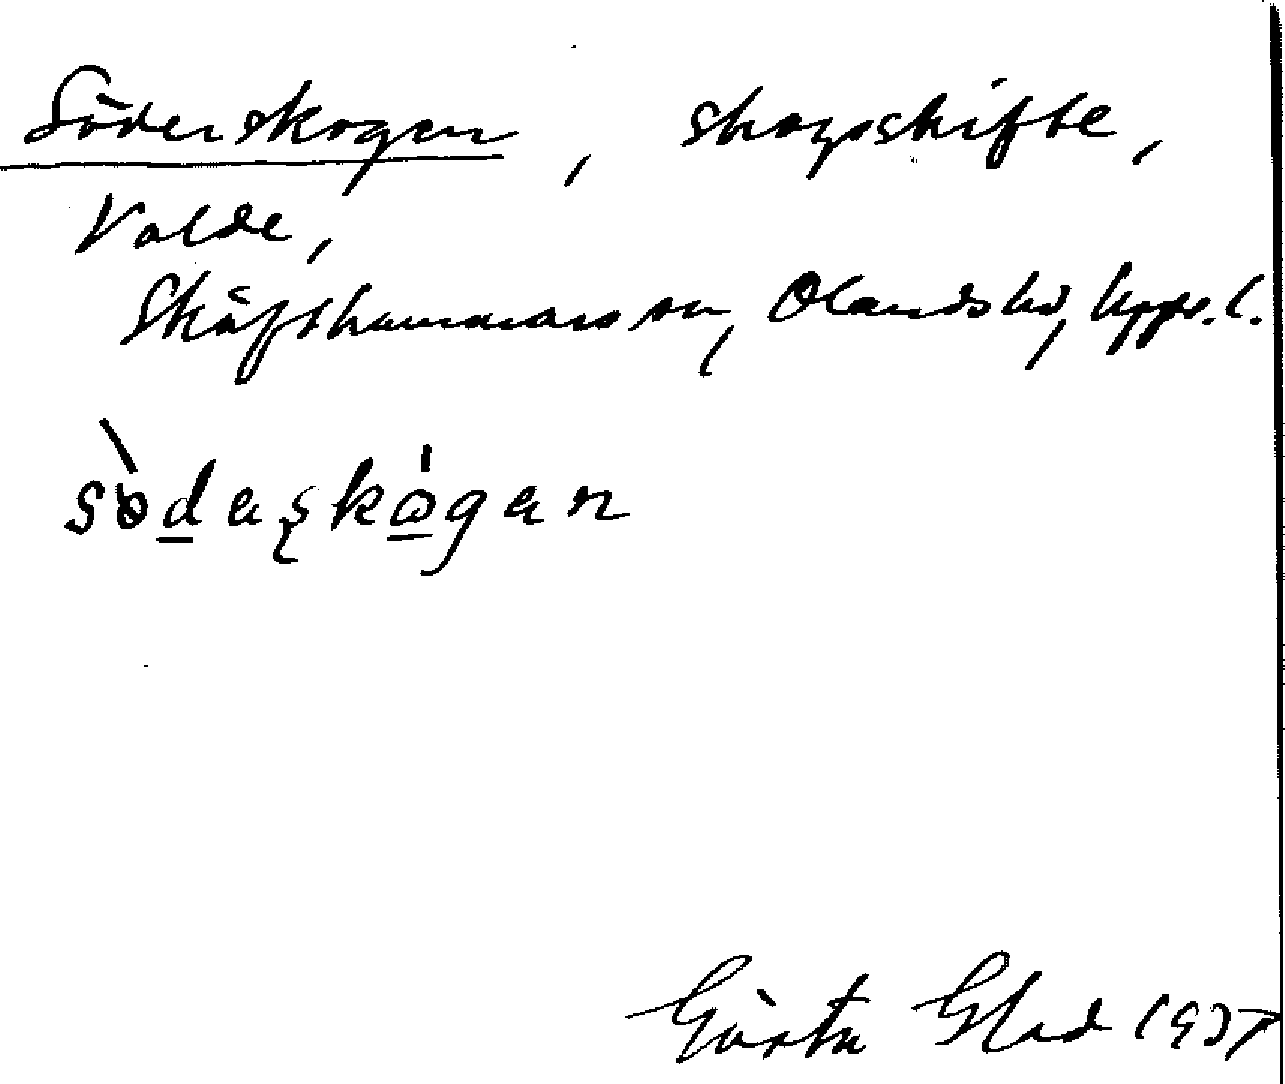 Söderskogen, skogsskifte,
Valde,
Skäfthammars sn, Olands hd, Upps. l.
södaʂkògan
Gösta Glad 1937